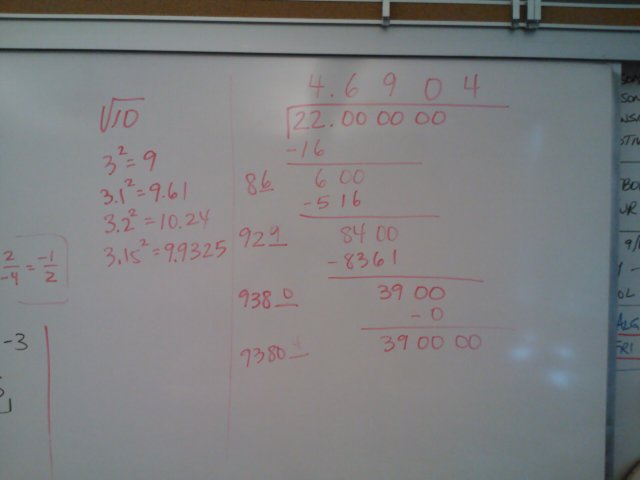 √10
3² = 9
3.1² = 9.61
3.2² = 10.24
3.15² = 9.9325
2/-4 = -1/2
-3
4.6 9 0 4
√22.00 00 00
-16
86 6 00
-516
929 84 00
-8361
9380 39 00
-0
93804 39 00 00